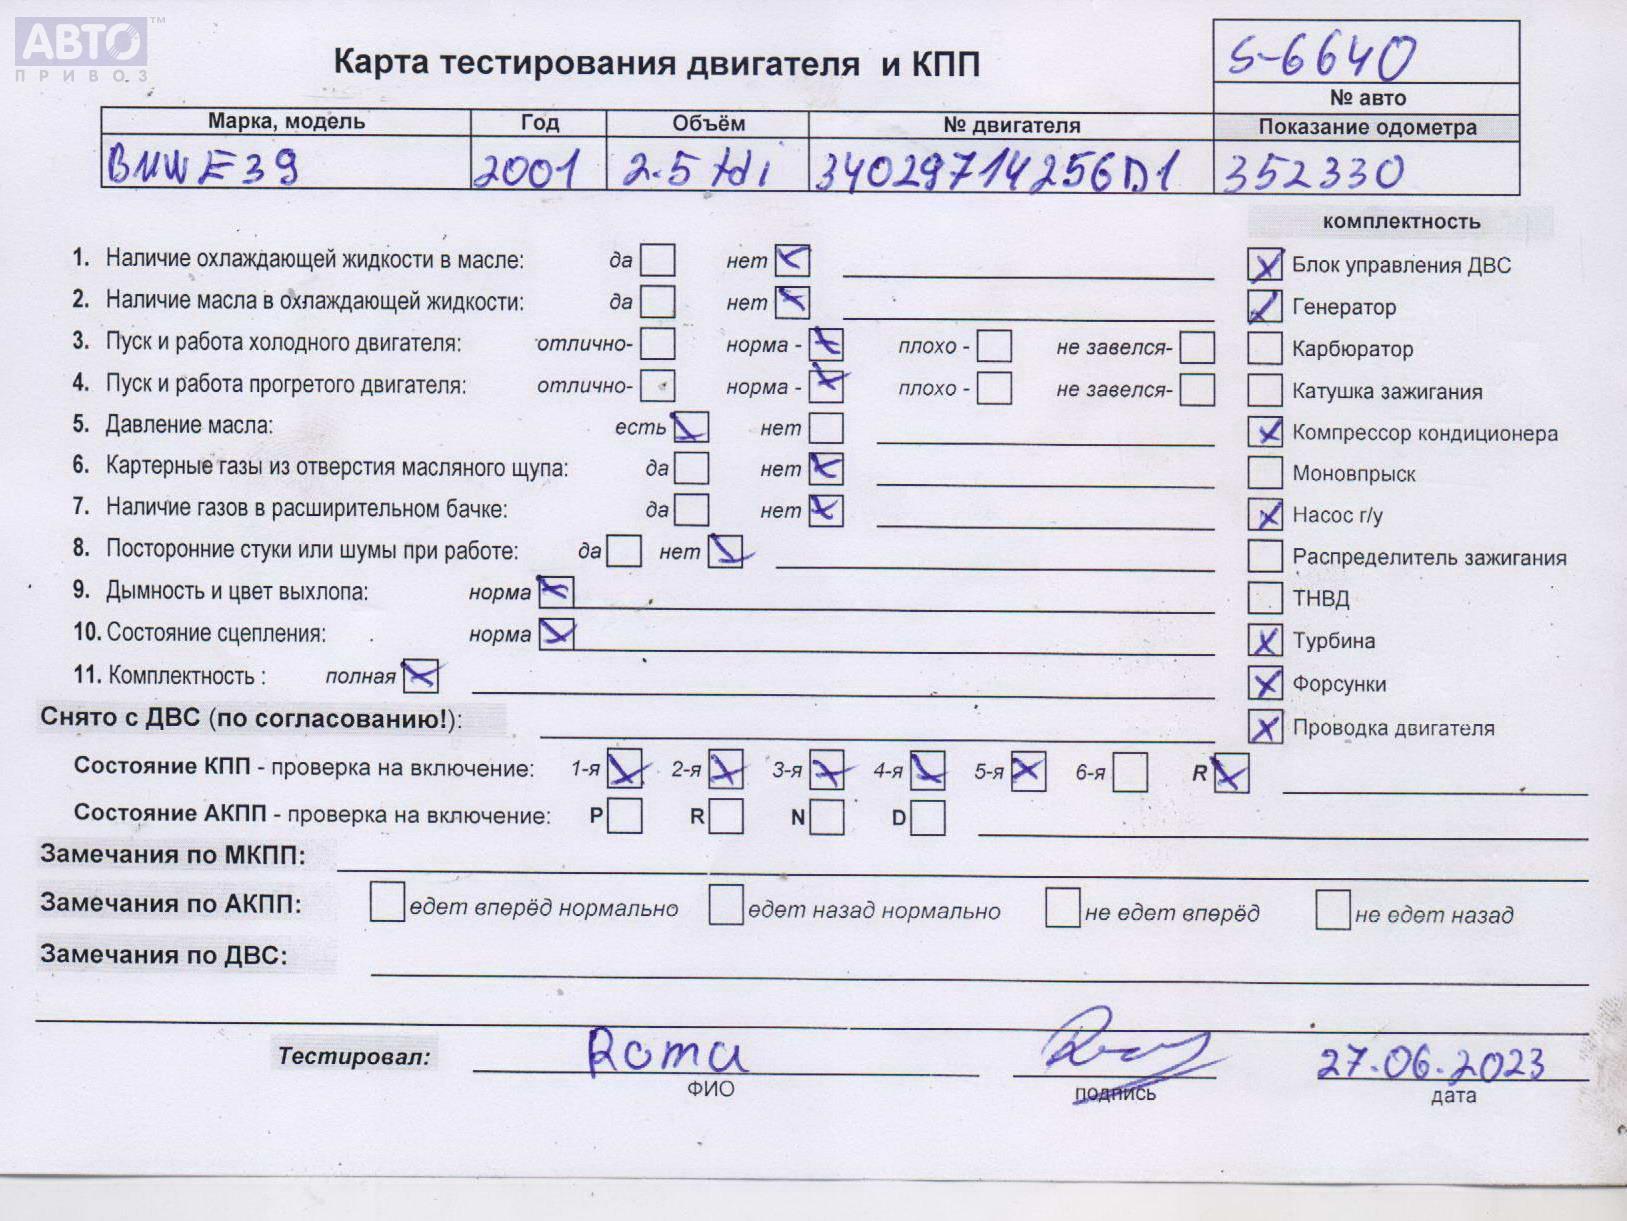 АВТО™
ПРИВОЗ
Карта тестирования двигателя и КПП
S-6640
№ авто
Марка, модель Год Объём № двигателя Показание одометра
BMW E39 2001 2.5 tdi 34029714256D1 352330
комплектность
1. Наличие охлаждающей жидкости в масле: да нет
Блок управления ДВС
2. Наличие масла в охлаждающей жидкости: да нет
Генератор
3. Пуск и работа холодного двигателя: отлично- норма - плохо - не завелся-
Карбюратор
4. Пуск и работа прогретого двигателя: отлично- норма - плохо - не завелся-
Катушка зажигания
5. Давление масла: есть нет
Компрессор кондиционера
6. Картерные газы из отверстия масляного щупа: да нет
Моновпрыск
7. Наличие газов в расширительном бачке: да нет
Насос г/у
8. Посторонние стуки или шумы при работе: да нет
Распределитель зажигания
9. Дымность и цвет выхлопа: норма
ТНВД
10. Состояние сцепления: норма
Турбина
11. Комплектность : полная
Форсунки
Снято с ДВС (по согласованию!):
Проводка двигателя
Состояние КПП - проверка на включение: 1-я 2-я 3-я 4-я 5-я 6-я R
Состояние АКПП - проверка на включение: P R N D
Замечания по МКПП:
Замечания по АКПП: едет вперёд нормально едет назад нормально не едет вперёд не едет назад
Замечания по ДВС:
Тестировал: Roma 27.06.2023
ФИО подпись дата